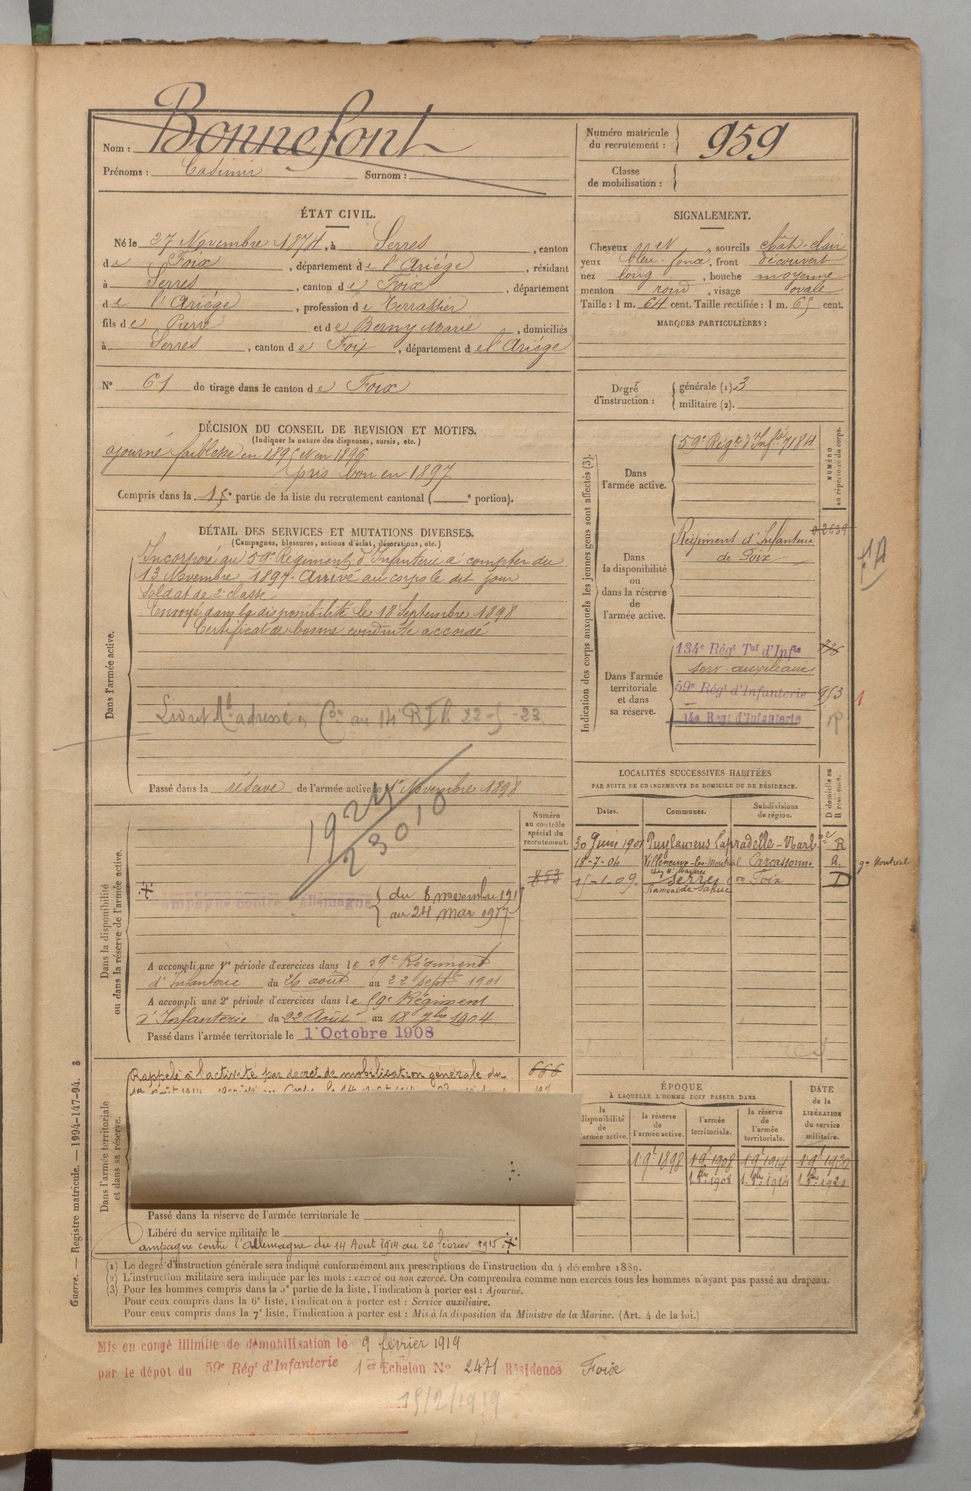 Nom : Bonnefont
Prénoms : Casimir Surnom :
Numéro matricule du recrutement : 959
Classe de mobilisation :
ÉTAT CIVIL.
Né le 27 Novembre 1874, à Serres, canton
de Foix, département de l'Ariège, résidant
à Serres, canton de Foix, département
de l'Ariège, profession de Terrassier
fils de Pierre et de Berny Marie, domiciliés
à Serres, canton de Foix, département de l'Ariège
N° 61 de tirage dans le canton de Foix
SIGNALEMENT.
Cheveux , sourcils chât-clair
yeux bleu-foncé, front découvert
nez long, bouche moyenne
menton rond, visage ovale
Taille : 1 m. 64 cent. Taille rectifiée : 1 m. 65 cent.
MARQUES PARTICULIÈRES :
Degré d'instruction :
générale (1). 3
militaire (2).
DÉCISION DU CONSEIL DE REVISION ET MOTIFS.
(Indiquer la nature des dispenses, sursis, etc.)
ajourné faiblesse en 1895 et en 1896
pris bon en 1897
Compris dans la e partie de la liste du recrutement cantonal ( e portion).
DÉTAIL DES SERVICES ET MUTATIONS DIVERSES.
(Campagnes, blessures, actions d'éclat, décorations, etc.)
Dans l'armée active.
Incorporé au 59e Régiment d'Infanterie à compter du
13 Novembre 1897. Arrivé au corps le dit jour
Soldat de 2e classe
Envoyé dans la disponibilité le 18 Septembre 1898
Certificat de bonne conduite accordé
Livret adressé au 14e RI le 22-5-23
Passé dans la réserve de l'armée active le 1er Novembre 1898
1924
23010
Indication des corps auxquels les jeunes gens sont affectés (3).
NUMÉRO au répertoire du corps.
Dans l'armée active.
59e Régt d'Infie 7184
Dans la disponibilité ou dans la réserve de l'armée active.
Régiment d'Infanterie
de Foix
Dans l'armée territoriale et dans sa réserve.
134e Régt Tal d'Infie
serv. auxiliaire
59e Régt d'Infanterie 953
14e Régt d'Infanterie
LOCALITÉS SUCCESSIVES HABITÉES
PAR SUITE DE CHANGEMENTS DE DOMICILE OU DE RÉSIDENCE.
Dates. Communes. Subdivisions de région. D domicile ou R résidence.
30 Juin 1901 Puylaurens Lapradelle - Narbne R
18-7-04 Carcassonne R.
15-1-09 Serres Foix D
Numéro au contrôle spécial du recrutement.
Dans la disponibilité ou dans la réserve de l'armée active.
Campagne contre Allemagne
au 24 Mar 1917
A accompli une 1re période d'exercices dans le 59e Régiment
d'Infanterie du 26 août au 22 septbre 1901
A accompli une 2e période d'exercices dans le 59e Régiment
d'Infanterie du 22 Août au 18 7bre 1904
Passé dans l'armée territoriale le 1er Octobre 1908
Dans l'armée territoriale et dans sa réserve.
Rappelé à l'activité par décret de mobilisation générale du
666
ÉPOQUE
À LAQUELLE L'HOMME DOIT PASSER DANS
la disponibilité de l'armée active. la réserve de l'armée active. l'armée territoriale. la réserve de l'armée territoriale.
DATE de la LIBÉRATION du service militaire.
1-9bre 1898 1-9bre 1908 1-9bre 1914 1-9bre 1920
1-8bre 1908 1-8bre 1914 1-8bre 1920
Passé dans la réserve de l'armée territoriale le
Libéré du service militaire le
ampagne contre l'Allemagne du 14 Aout 1914 au 20 fevrier 1915
(1) Le degré d'instruction générale sera indiqué conformément aux prescriptions de l'instruction du 4 décembre 1889.
(2) L'instruction militaire sera indiquée par les mots : exercé ou non exercé. On comprendra comme non exercés tous les hommes n'ayant pas passé au drapeau.
(3) Pour les hommes compris dans la 5e partie de la liste, l'indication à porter est : Ajourné.
Pour ceux compris dans la 6e liste, l'indication à porter est : Service auxiliaire.
Pour ceux compris dans la 7e liste, l'indication à porter est : Mis à la disposition du Ministre de la Marine. (Art. 4 de la loi.)
Guerre. — Registre matricule. — 1994-147-94. 3
Mis en congé illimité de démobilisation le 9 février 1919
par le dépôt du 59e Régt d'Infanterie 1er Echelon N° 2471 Résidence Foix
15/2/1919